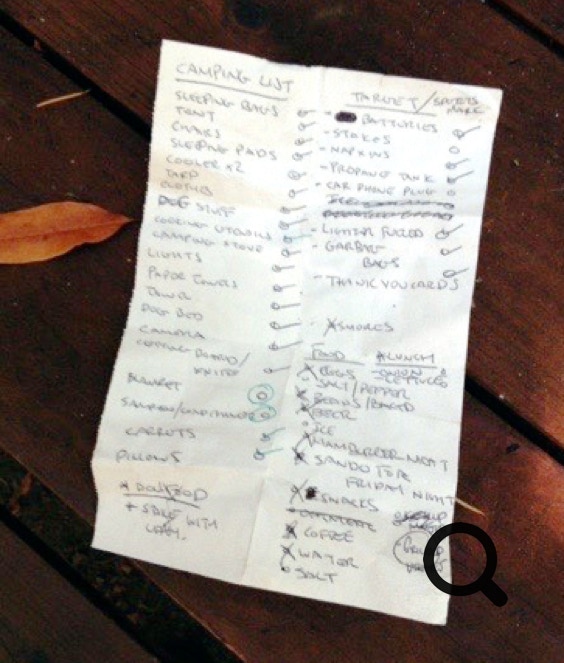 CAMPING LIST
SLEEPING BAGS
TENT
CHAIRS
SLEEPING PADS
COOLER x2
TARP
CLOTHES
DOG STUFF
COOKING UTENSILS
CAMPING STOVE
LIGHTS
PAPER TOWELS
TOWEL
DOG BED
CAMERA
CUTTING BOARD/
KNIFE
BLANKET
SALMON/
CARROTS
PILLOWS
* DOG FOOD
+ SALE WITH
TARGET/SPORTS
- BATTERIES
- STAKES
- NAPKINS
- PROPANE TANK
- CAR PHONE PLUG
ICE
- LIGHTER FLUID
- GARBAGE
BAGS
- THANK YOU CARDS
- SMORES
FOOD
EGGS
SALT/PEPPER
BEANS/BAKED
BEER
ICE
HAMBURGER MEAT
SANDO FOR
FRIDAY NIGHT
SNACKS
COFFEE
WATER
SALT
LUNCH
- ONION &
- LETTUCE